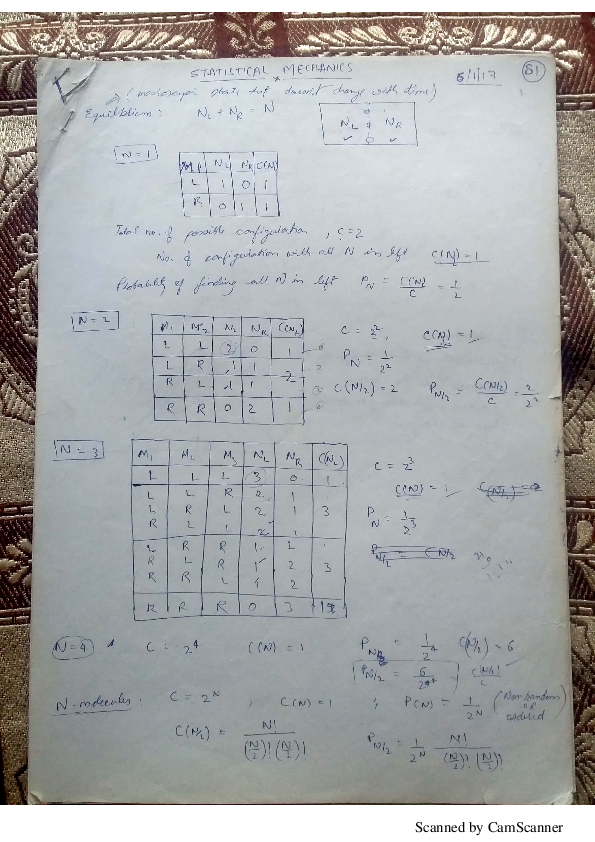 STATISTICAL MECHANICS
5/1/17
S1
(macroscopic state that doesn't change with time)
Equilibrium: NL + NR = N
NL NR
N=1
M1 NL NR C(N)
L 1 0 1
R 0 1 1
Total no. of possible configuration, C=2
No. of configuration with all N in left C(N)=1
Probability of finding all N in left PN = C(N)/C = 1/2
N=2
M1 M2 NL NR C(NL)
L L 2 0 1
L R 1 1 2
R L 1 1
R R 0 2 1
C = 2², C(N) = 1
PN = 1/2²
C(N/2) = 2 PN/2 = C(N/2)/C = 2/2²
N=3
M1 M2 M3 NL NR C(NL)
L L L 3 0 1
L L R 2 1
L R L 2 1 3
R L L 2 1
L R R 1 2
R L R 1 2 3
R R L 1 2
R R R 0 3 1
C = 2³
C(N) = 1
PN = 1/2³
N=4 C = 2⁴ C(N) = 1 PN = 1/2⁴ C(N/2) = 6
PN/2 = 6/2⁴ = C(N/2)/C
N-molecules: C = 2ᴺ, C(N) = 1; P(N) = 1/2ᴺ (Non random or ordered)
C(N/2) = N!/(N/2)!(N/2)! PN/2 = 1/2ᴺ N!/(N/2)!(N/2)!
Scanned by CamScanner